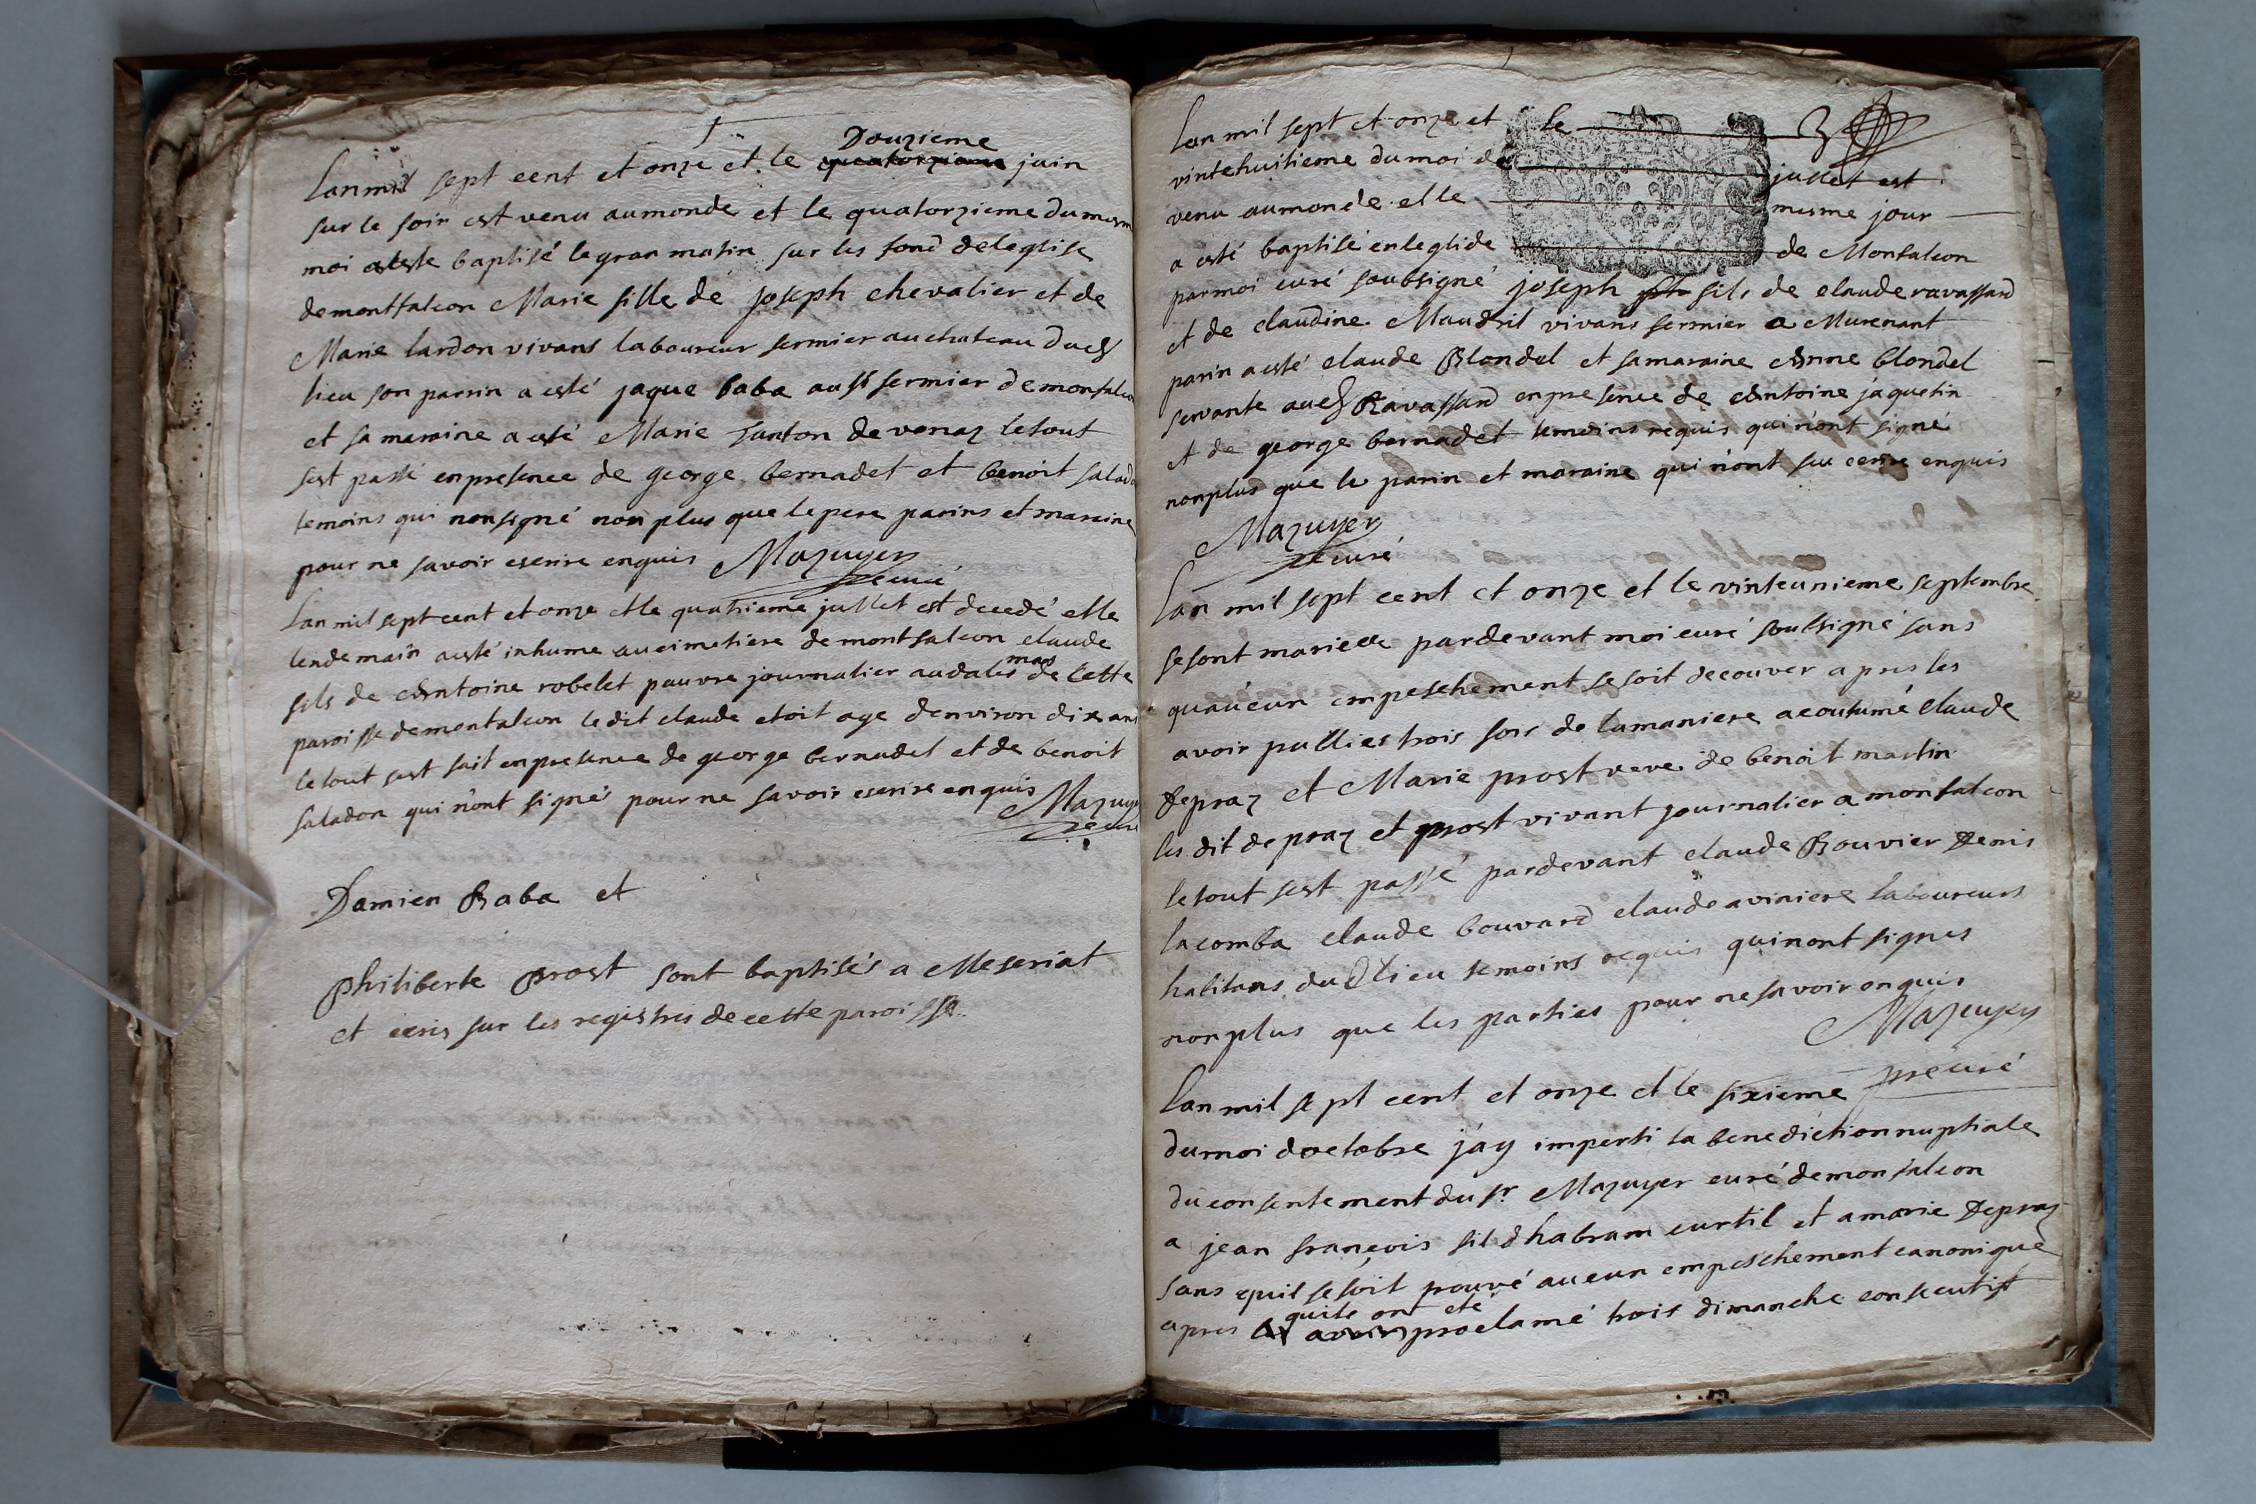 Lan mil sept cent et onze et le quatorzieme Douzieme juin
sur le soir est venu au monde et le quatorzieme du mesm
moi a este baptisé le gran matin sur les fond de leglise
de montfalcon Marie fille de joseph chevalier et de
Marie lardon vivans laboureur fermier au chateau dud
lieu son parrin a esté jaque baba aussi fermier de monfalcon
et sa maraine a esté Marie de venaz le tout
sest passé en presence de george bernadet et benoit salado
temoins qui non signé non plus que le pere parins et maraine
pour ne savoir escrire enquis Mazuyer
p curé
Lan mil sept cent et onze et le quatrieme jullet est decedé et le
lendemain a esté inhume au cimetiere de montfalcon claude
fils de Antoine robelet pauvre journalier au dales mas de cette
paroisse de montalcon le dit claude etoit age denviron dix ans
le tout sest fait en presence de george bernadet et de benoit
saladon qui n'ont signés pour ne savoir escrire enquis Mazuye
p cure
Damien Baba et
Philiberte Prost sont baptisés a Meseriat
et ecris sur les registres de cette paroisse
Lan mil sept et onze et le
vintehuitieme du moi de jullet est
venu au monde et le mesme jour
a esté baptisé en leglide de Monfalcon
par moi curé soubsigné joseph fils de claude ravassard
et de claudine Maudril vivans fermier a Murenant
parin a esté claude Blondel et sa maraine Anne blondel
servante aud Ravassard en presence de Antoine jaquetin
et de george bernadet temoins requis qui n'ont signé
non plus que le parin et maraine qui n'ont scu ecrire enquis
Mazuyer
p curé
Lan mil sept cent et onze et le vinteunieme septembre
se sont mariee pardevant moi curé soubsigné sans
quaucun empeschement se soit decouver apres les
avoir pulliés trois fois de la maniere acoutumé claude
Depraz et Marie prost veve de benoit martin
les dit depraz et prost vivant journalier a monfalcon
le tout sest passé pardevant claude Bouvier Denis
lacomba claude bouvard claude aviniere laboureurs
habitans dud lieu temoins requis qui nont signes
non plus que les parties pour ne savoir enquis
Mazuyer
p curé
Lan mil sept cent et onze et le sixieme
du moi doctobre jay imperti la benediction nuptiale
du consentement du sr Mazuyer curé de monfalcon
a jean françois fil dhabram curtil et a marie Depraz
sans quil se soit trouvé aucun empeschement canonique
apres quils ont eté proclamé trois dimanche consecutif